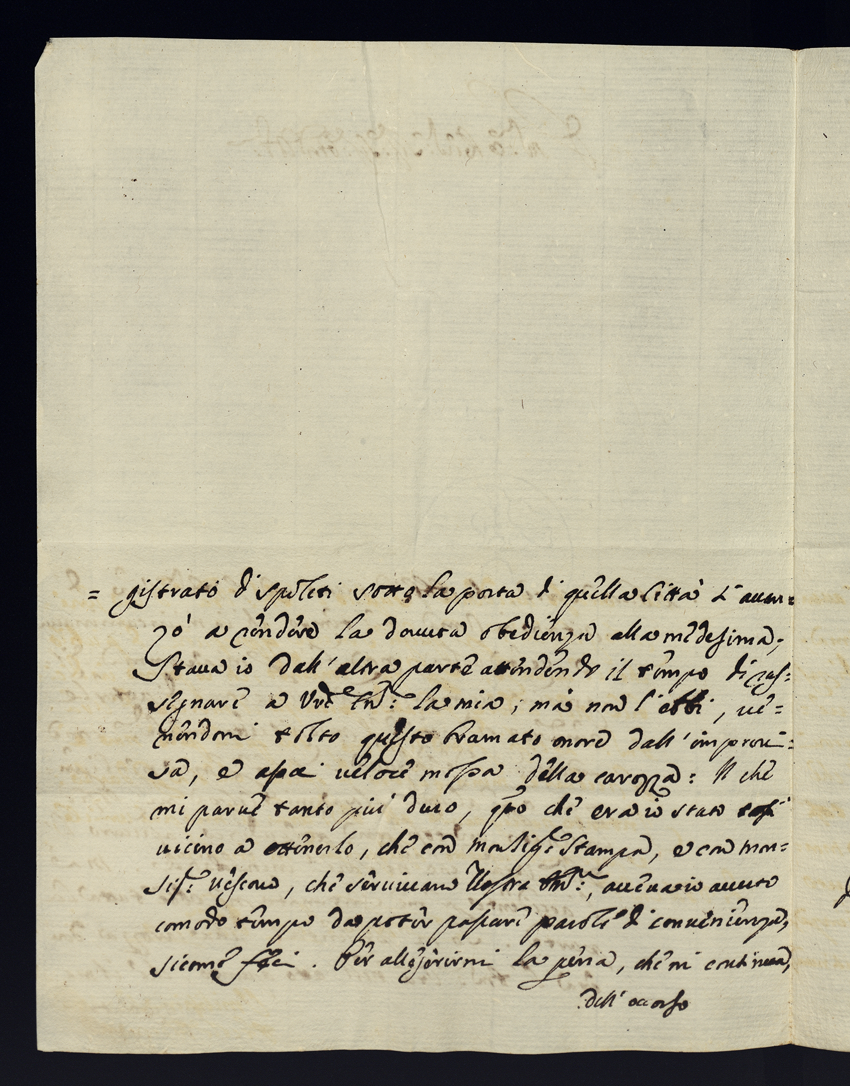 = gistrato di Spoleti sotto la porta di quella Città s'avan=
zò a rendere la dovuta obedienza alla medesima;
stava io dall'altra parte attendendo il tempo di ras=
segnare a Vrã Em: la mia; mà non l'ebbi, ve=
nendomi tolto questo bramato onore dall'improvi=
sa, e assai veloce mossa della carozza: Il che
mi parve tanto più duro, qto che era io stato così
vicino a ottenerlo, che con Monsigre Stampa, e con Mon=
sigre Vescovo, che servivano Vostra Em:, aveva io avuto
comodo tempo da poter passare parole di convenienza,
sicome feci. Per allegerirmi la pena, che mi continua,
dell' occorso